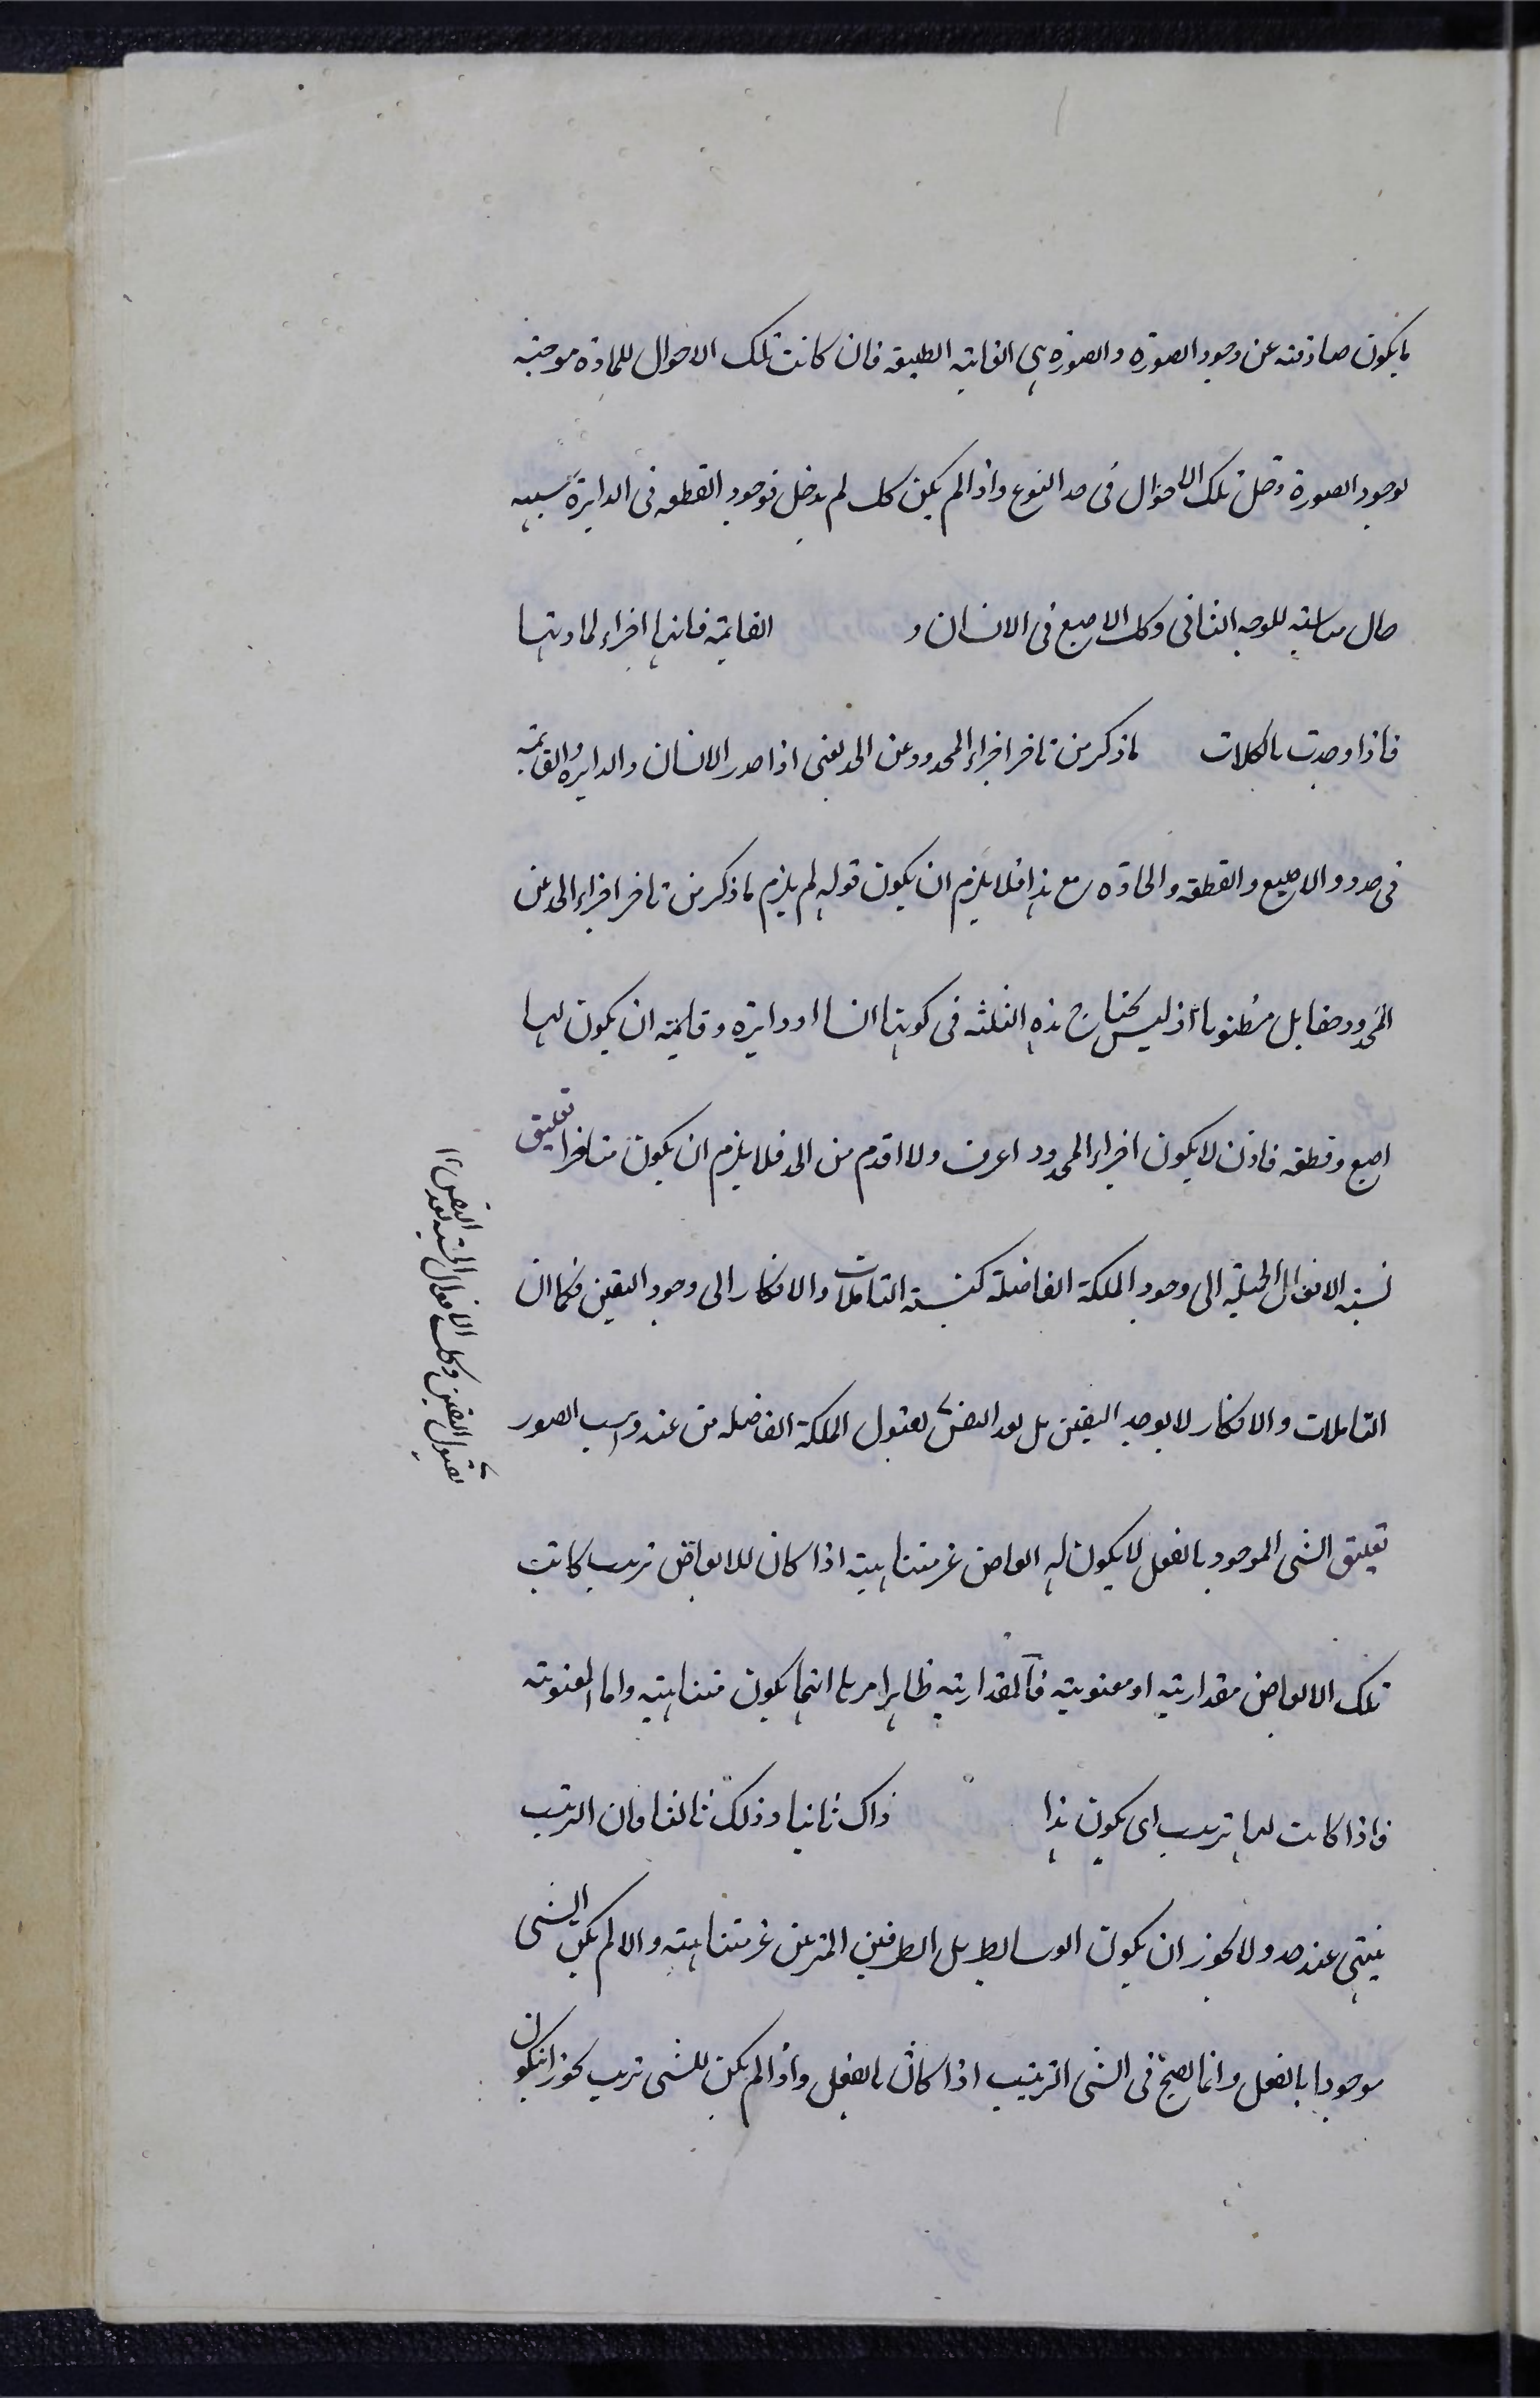 ما يكون صادقته عن وجود الصورة والصورة هى الغايته الطبيعه فان كانت تلك الاحوال للمادة موجبته
لوجود الصورة دخل تلك الاحوال فى حد النوع واذا لم يكن كك لم يدخل فوجود القطعه فى الدايرة سبيه
حال مناسبته للوجه الثانى وكك الاصبع فى الانسان و القايمته فانها اجزاء لمادتها
فاذا وجدت بالكلات ما ذكر من تاخر اجزاء المحدود عن الحد يعنى اذا حد الانسان والدايره والقايمته
فى حدود الاصبع والقطعه والحادة مع هذا فلا يلزم ان يكون قوله لم يلزم ما ذكر من تاخر اجزاء الحد عن
المحدود حقا بل مظنونا اذ ليس يحتاج هذه الثلثه فى كونها انسانا او دايرة وقايمته ان يكون لها
اصبع وقطعه فاذن لا يكون اجزاء المحدود اعرف ولا اقدم من الحد فلا يلزم ان يكون متاخرا تعليق
نسبة الافعال الجميلة الى وجود الملكة الفاضلة كنسبة التاملات والافكار الى وجود اليقين فكما ان
التاملات والافكار لا يوجد اليقين بل يعد النفس لقبول الملكة الفاضله من عند واهب الصور
لقبول اليقين وكك الافعال الحسنه تعد النفس ١٢
تعليق الشى الموجود بالفعل لا يكون له ابعاض غير متناهيته اذا كان للابعاض ترتيب كانت
تلك الابعاض مقداريته او معنويته فالمقداريته ظاهر امرها انها يكون متناهيته واما المعنويته
فاذا كانت لها ترتيب اى يكون هذا ذاك ثانيا وذلك ثالثا فان الترتيب
ينتهى عند حد ولا يجوز ان يكون الوسايط بين الطرفين المترتبين غير متناهيته والا لم يكن الشى
موجودا بالفعل وانما يصح فى الشى الترتيب اذا كان بالفعل واذا لم يكن للشى ترتيب يجوز ان يكون